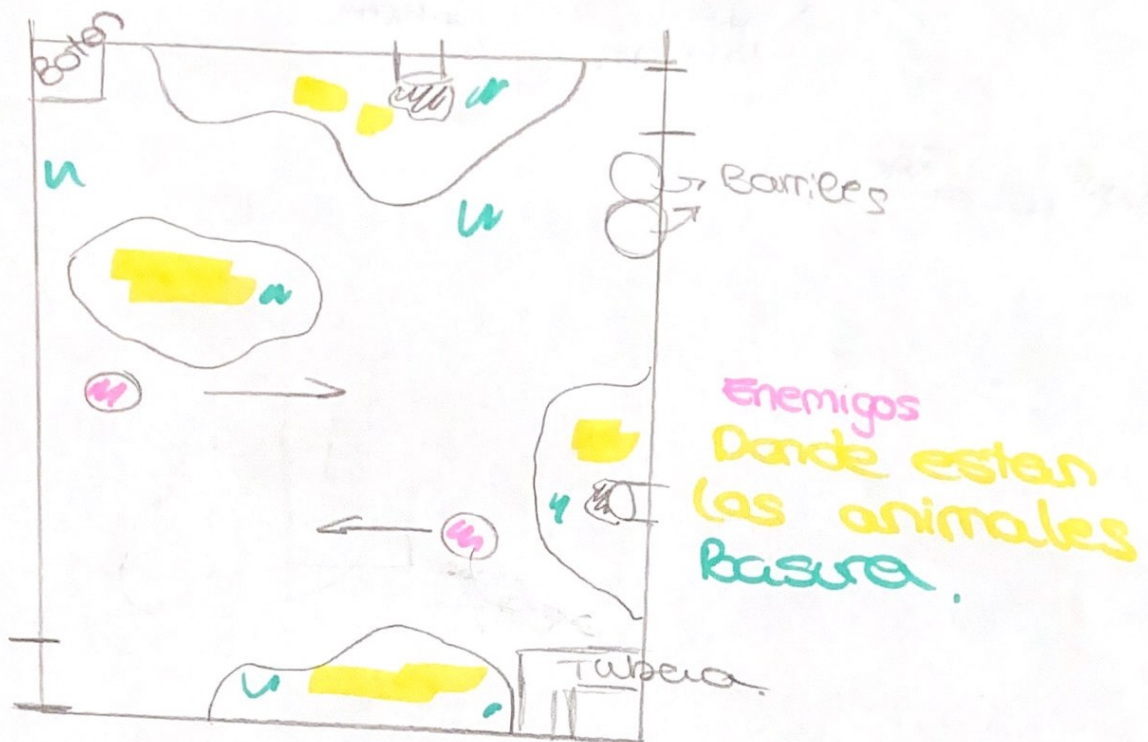 Botes
Barriles
Enemigos
Donde estan
los animales
Basura.
Tuberia.